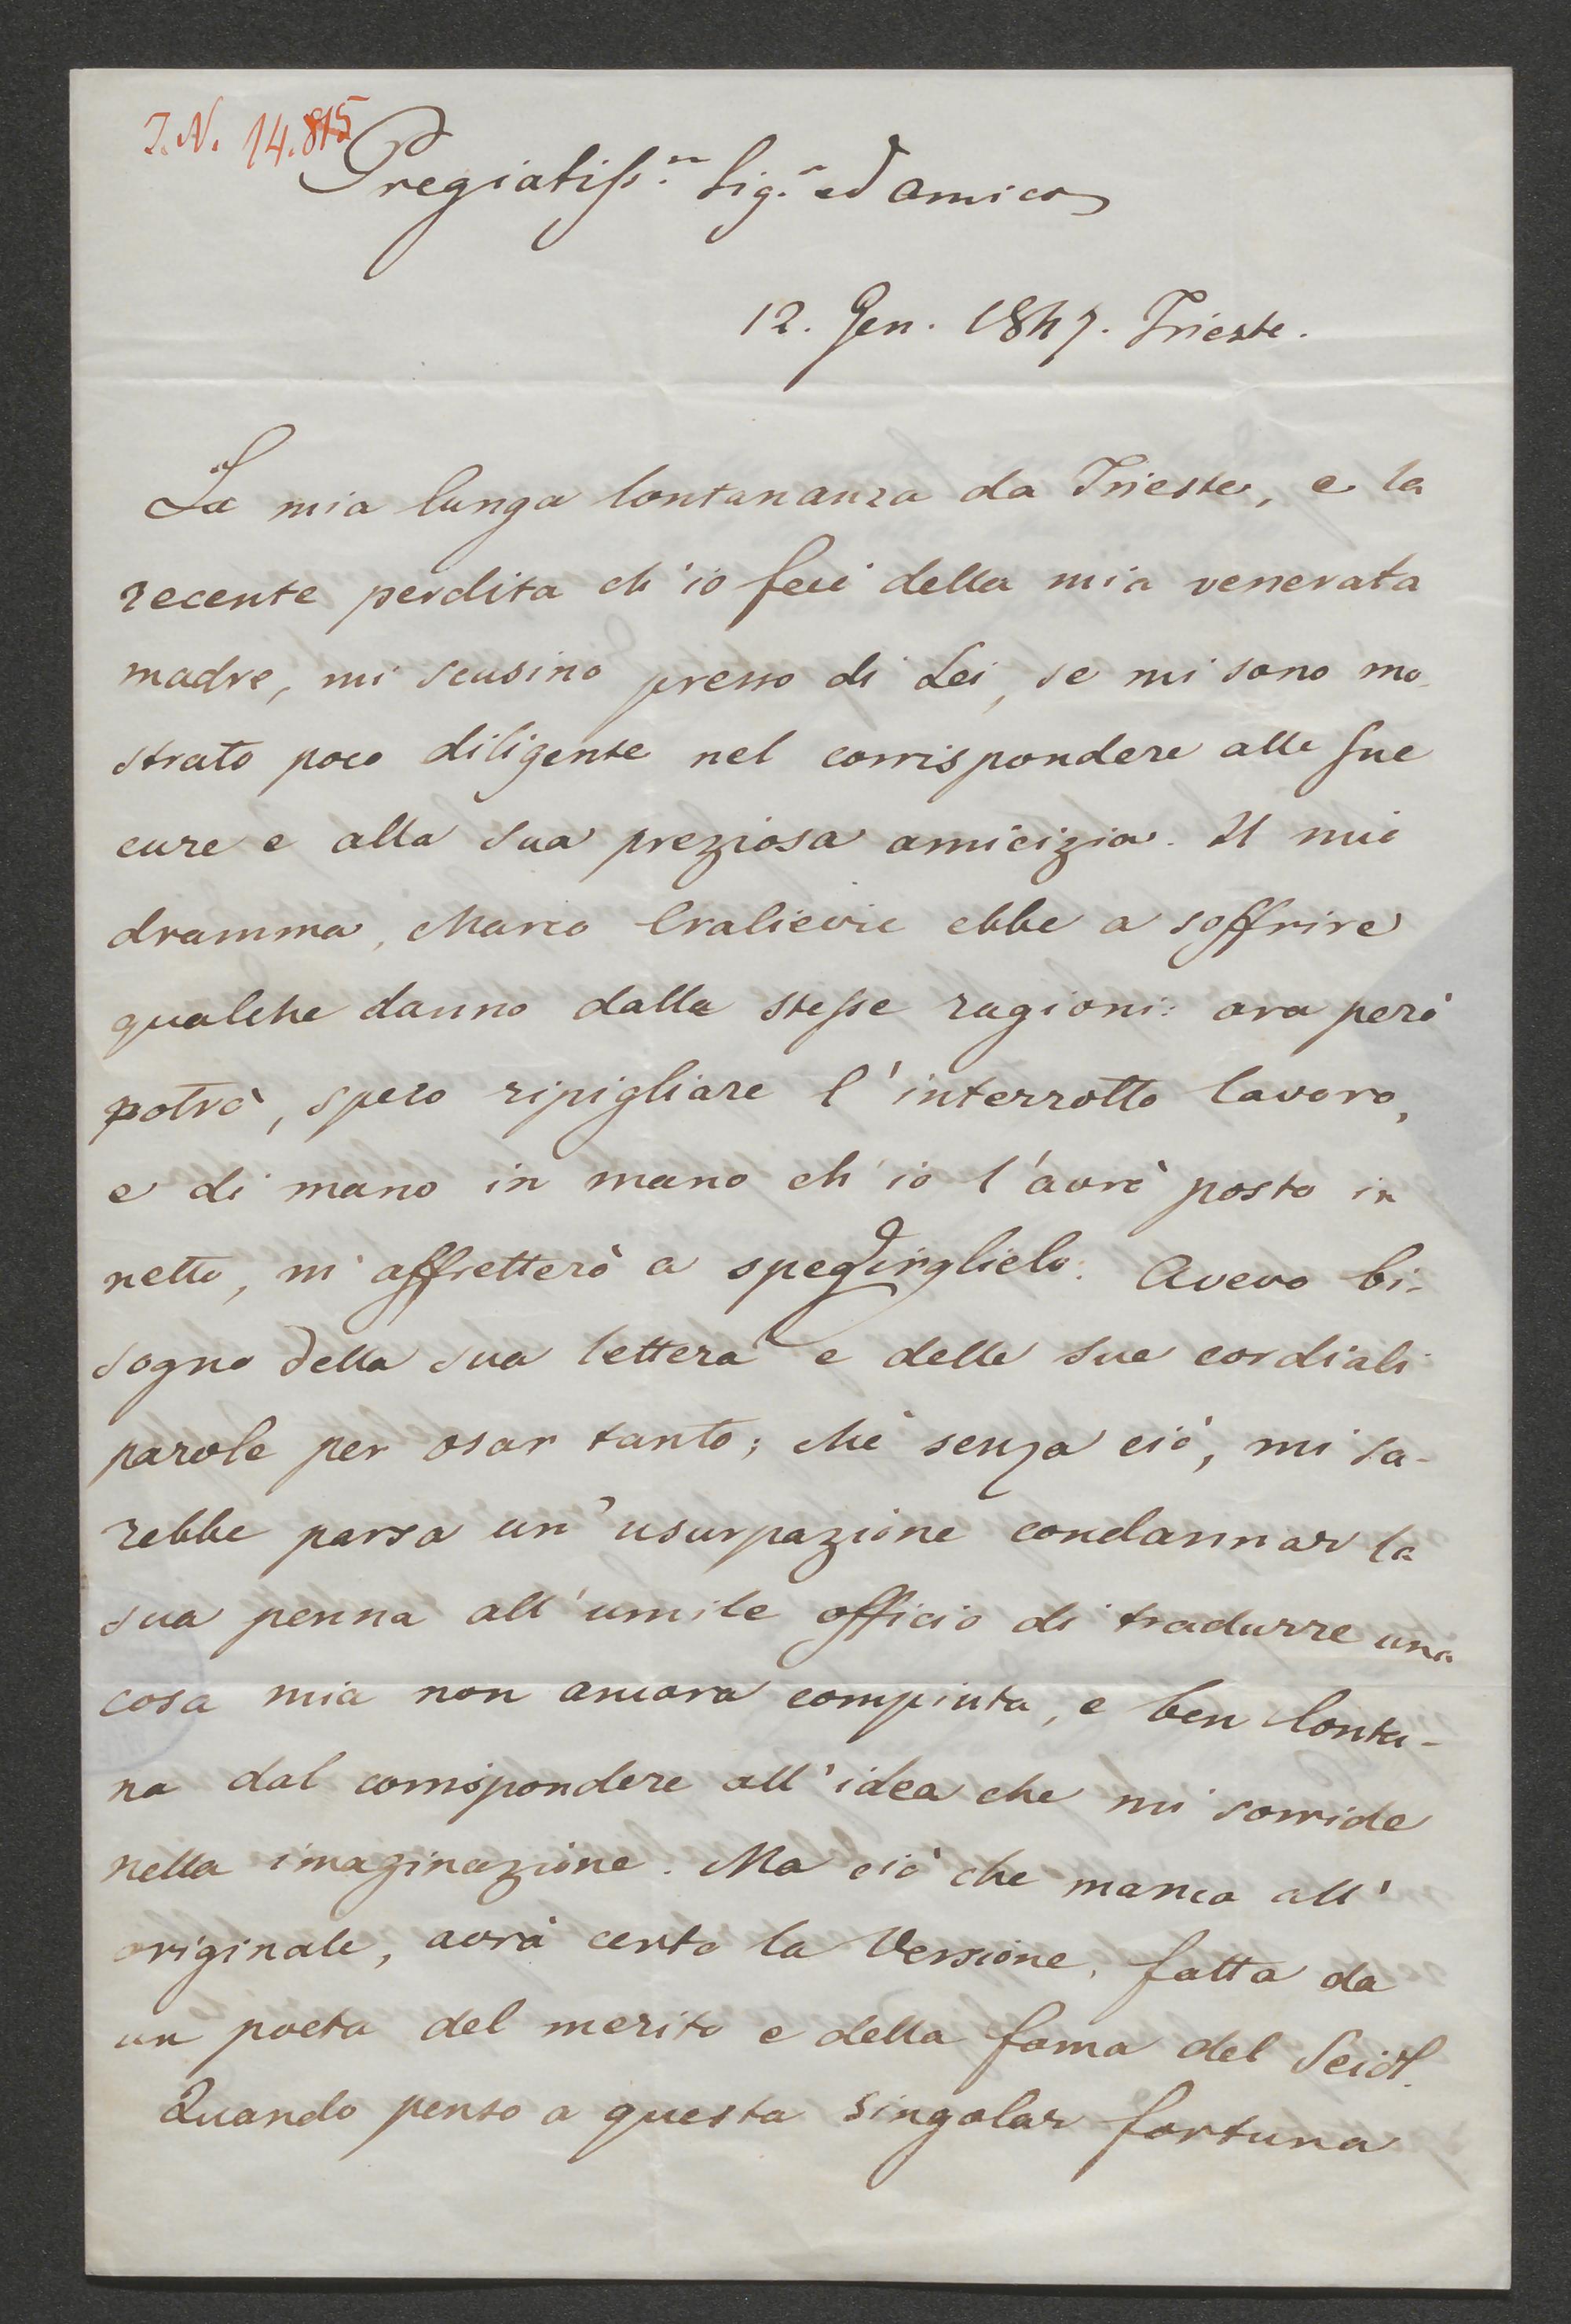 I. N. 14.815
Pregiatiss.mo Sig.r ed amico
12. Gen. 1847. Trieste.
La mia lunga lontananza da Trieste, e la
recente perdita ch'io feci della mia venerata
madre, mi scusino presso di Lei, se mi sono mo-
strato poco diligente nel corrispondere alle Sue
cure e alla sua preziosa amicizia. Il mio
dramma, Marco Cralievic ebbe a soffrire
qualche danno dalle stesse ragioni: ora però
potrò, spero ripigliare l'interrotto lavoro,
e di mano in mano ch'io l'avrò posto in
netto, m'affretterò a spedirglielo. Avevo bi-
sogno della sua lettera e delle sue cordiali
parole per osar tanto; chè senza ciò, mi sa-
rebbe parsa un'usurpazione condannar la
sua penna all'umile officio di tradurre una
cosa mia non ancora compiuta, e ben lonta-
na dal corrispondere all'idea che mi sorride
nella imaginazione. Ma ciò che manca all'
originale, avrà certo la Versione, fatta da
un poeta del merito e della fama del Seidl.
Quando penso a questa singolar fortuna